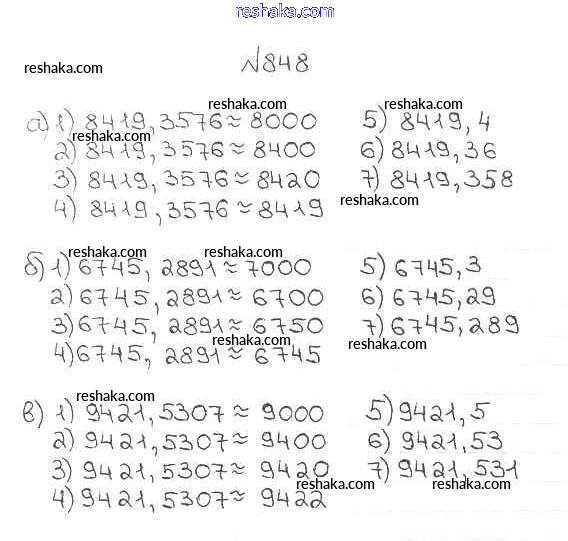 reshaka.com
№848
reshaka.com
reshaka.com reshaka.com
а) 1) 8419,3576 ≈ 8000 5) 8419,4
reshaka.com
2) 8419,3576 ≈ 8400 6) 8419,36
3) 8419,3576 ≈ 8420 7) 8419,358
reshaka.com
4) 8419,3576 ≈ 8419
reshaka.com reshaka.com
б) 1) 6745,2891 ≈ 7000 5) 6745,3
2) 6745,2891 ≈ 6700 6) 6745,29
3) 6745,2891 ≈ 6750 7) 6745,289
reshaka.com
4) 6745,2891 ≈ 6745
reshaka.com
в) 1) 9421,5307 ≈ 9000 5) 9421,5
2) 9421,5307 ≈ 9400 6) 9421,53
3) 9421,5307 ≈ 9420 7) 9421,531
reshaka.com reshaka.com
4) 9421,5307 ≈ 9422